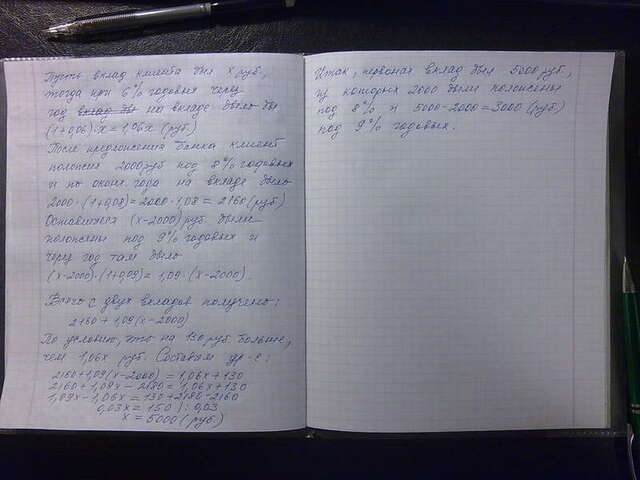 Пусть вклад клиента был x руб.,
тогда при 6% годовых через
год вклад бы на вкладе было бы
(1+0,06)·x = 1,06x (руб)
После предложения банка клиент
положил 2000 руб под 8% годовых
и по оконч. года на вкладе было
2000·(1+0,08)=2000·1,08 = 2160 (руб)
Оставшиеся (x-2000) руб были
положены под 9% годовых и
через год там было
(x-2000)·(1+0,09)= 1,09·(x-2000).
Всего с двух вкладов получено:
2160 + 1,09(x-2000)
По условию, это на 130 руб больше,
чем 1,06x руб. Составим ур-е:
2160+1,09(x-2000) = 1,06x+130
2160+1,09x - 2180 = 1,06x+130
1,09x-1,06x = 130+2180-2160
0,03x = 150 | : 0,03
x = 5000 (руб.)
Итак, первонач. вклад был 5000 руб.,
из которых 2000 были положены
под 8% и 5000-2000=3000 (руб)
под 9% годовых.